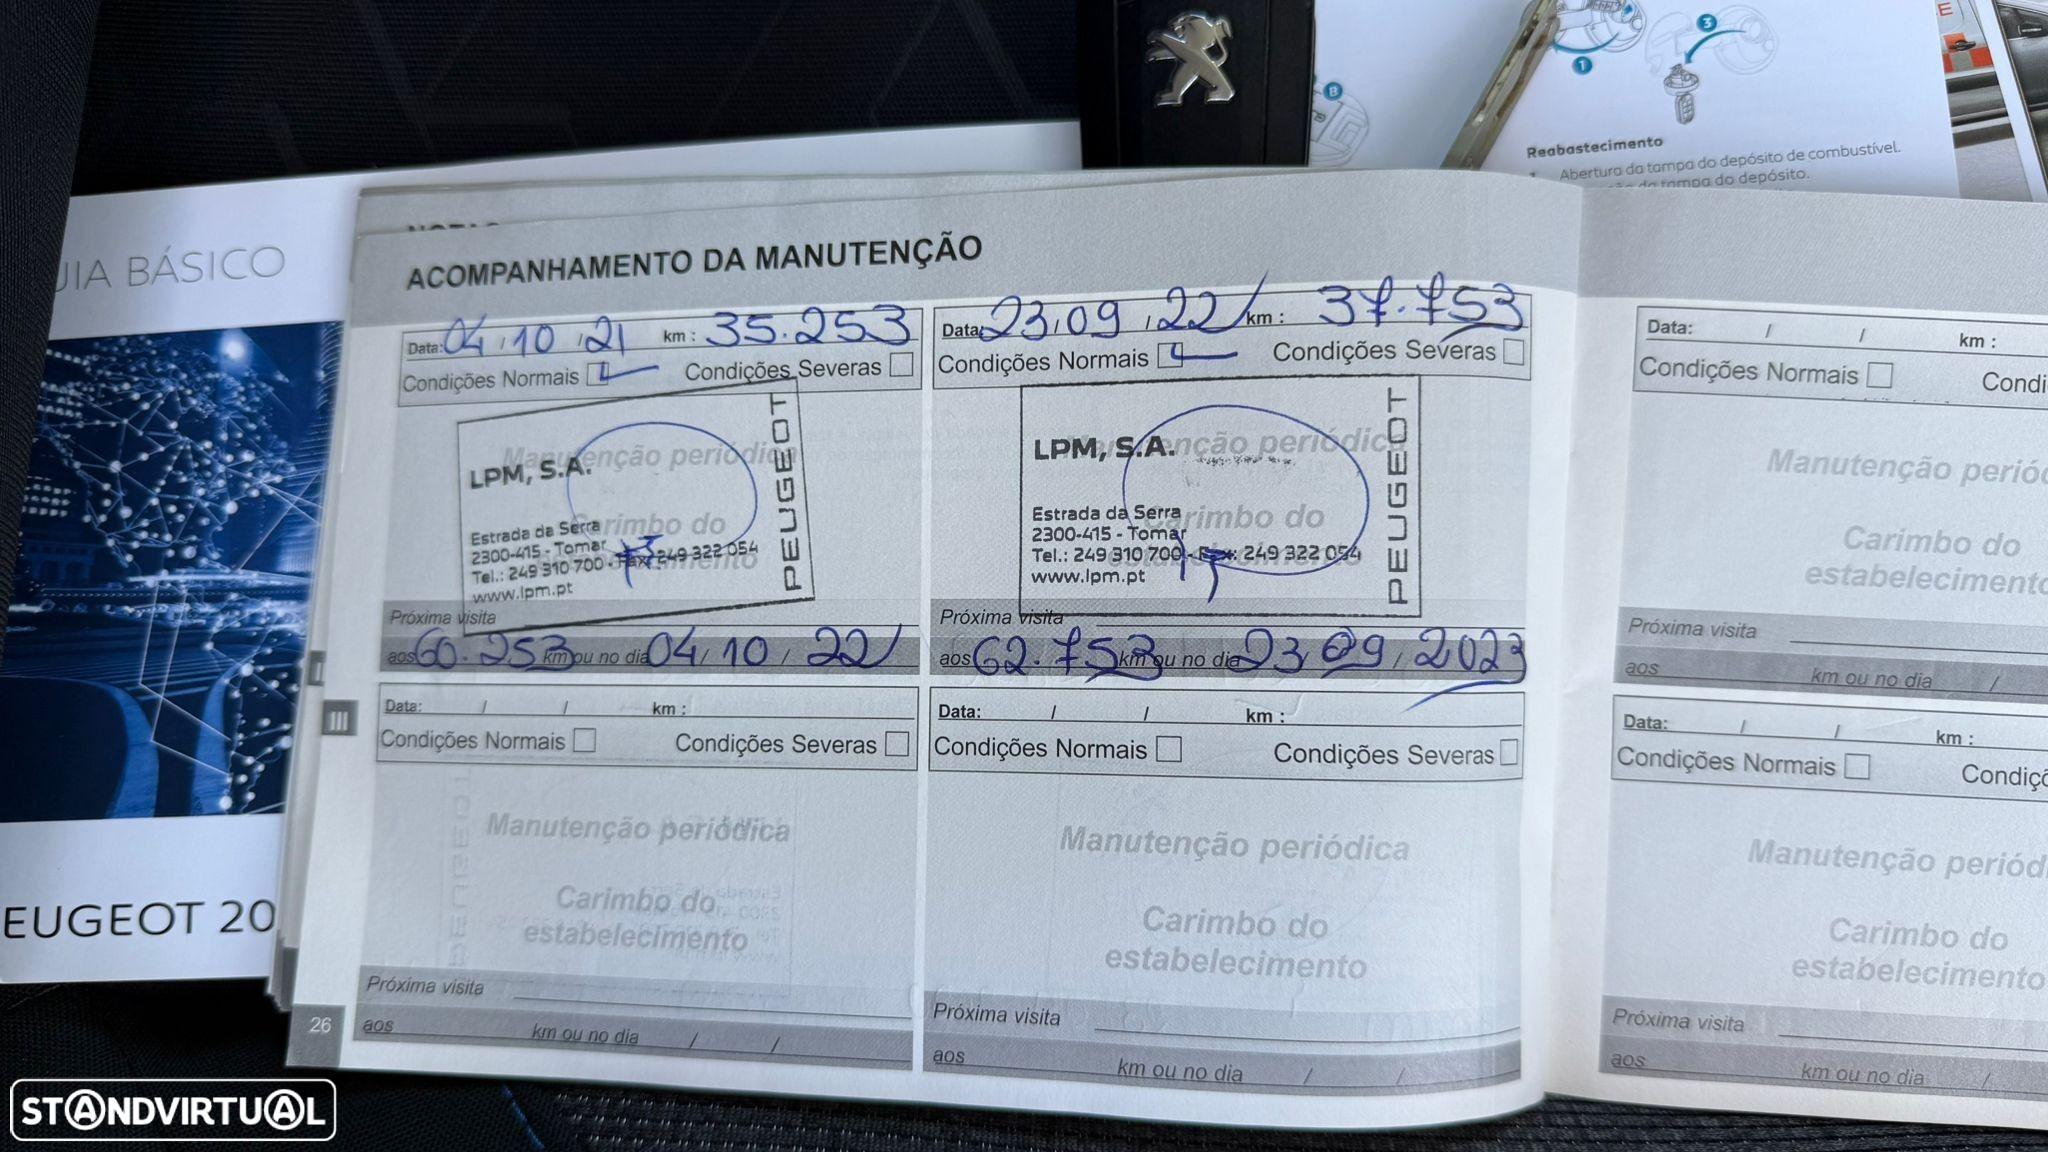 B
3
1
E
Reabastecimento
Abertura da tampa do depósito de combustível.
da tampa do depósito.
UIA BÁSICO
EUGEOT 20
ACOMPANHAMENTO DA MANUTENÇÃO
Data: 04 / 10 / 21 km : 35.253
Condições Normais Condições Severas
Manutenção periódica
Carimbo do
LPM, S.A.
Estrada da Serra
2300-415 - Tomar
Tel.: 249 310 700 - Fax: 249 322 054
www.lpm.pt
PEUGEOT
Próxima visita
aos 60.253 km ou no dia 04 / 10 / 22
Data: 23 / 09 / 22 km : 37.753
Condições Normais Condições Severas
Manutenção periódica
Carimbo do
estabelecimento
LPM, S.A.
Estrada da Serra
2300-415 - Tomar
Tel.: 249 310 700 - Fax: 249 322 054
www.lpm.pt
PEUGEOT
Próxima visita
aos 62.753 km ou no dia 23 / 09 / 2023
III
Data: / / km :
Condições Normais Condições Severas
Manutenção periódica
Carimbo do
estabelecimento
Próxima visita
aos km ou no dia / /
Data: / / km :
Condições Normais Condições Severas
Manutenção periódica
Carimbo do
estabelecimento
Próxima visita
aos km ou no dia / /
26
Data: / / km :
Condições Normais Condi
Manutenção perió
Carimbo do
estabelecimento
Próxima visita
aos km ou no dia /
Data: / / km :
Condições Normais Condiç
Manutenção periód
Carimbo do
estabelecimento
Próxima visita
aos km ou no dia /
STANDVIRTUAL